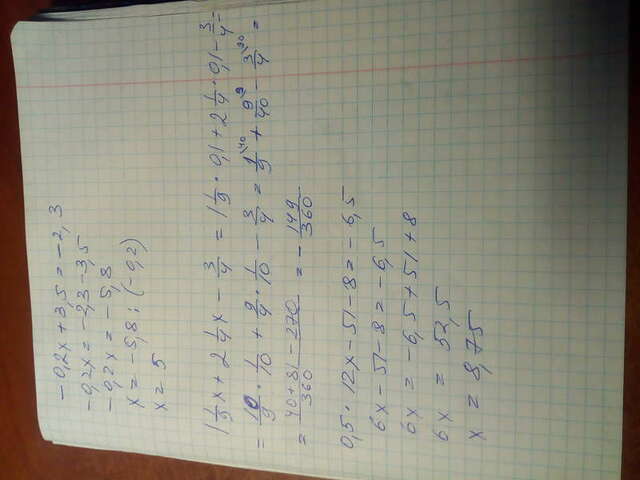 -0,2x+3,5=-2,3
-0,2x=-2,3-3,5
-0,2x=-5,8
x=-5,8:(-0,2)
x=5
1 1/9 x + 2 1/4 x - 3/4 = 1 1/9 · 0,1 + 2 1/4 · 0,1 - 3/4 =
= 10/9 · 1/10 + 9/4 · 1/10 - 3/4 = 1/9 \40 + 9/40 \9 - 3/4 \90 =
= 40+81-270/360 = -149/360
0,5·12x-51-8=-6,5
6x-51-8=-6,5
6x=-6,5+51+8
6x=52,5
x=8,75